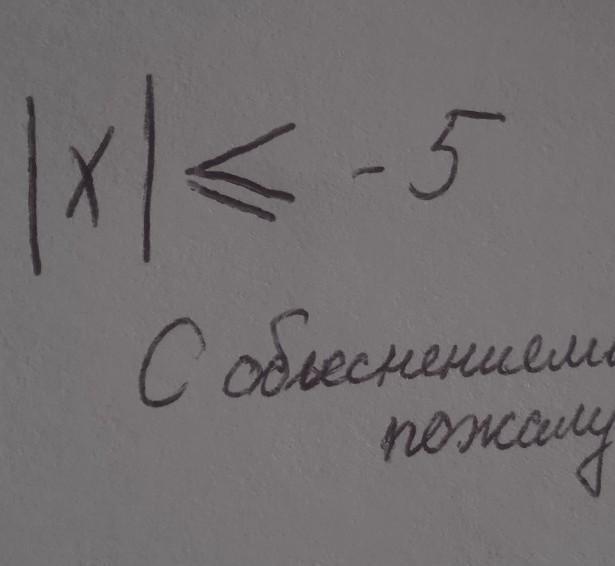 |x| ≤ -5
С обьеснением
пожалу